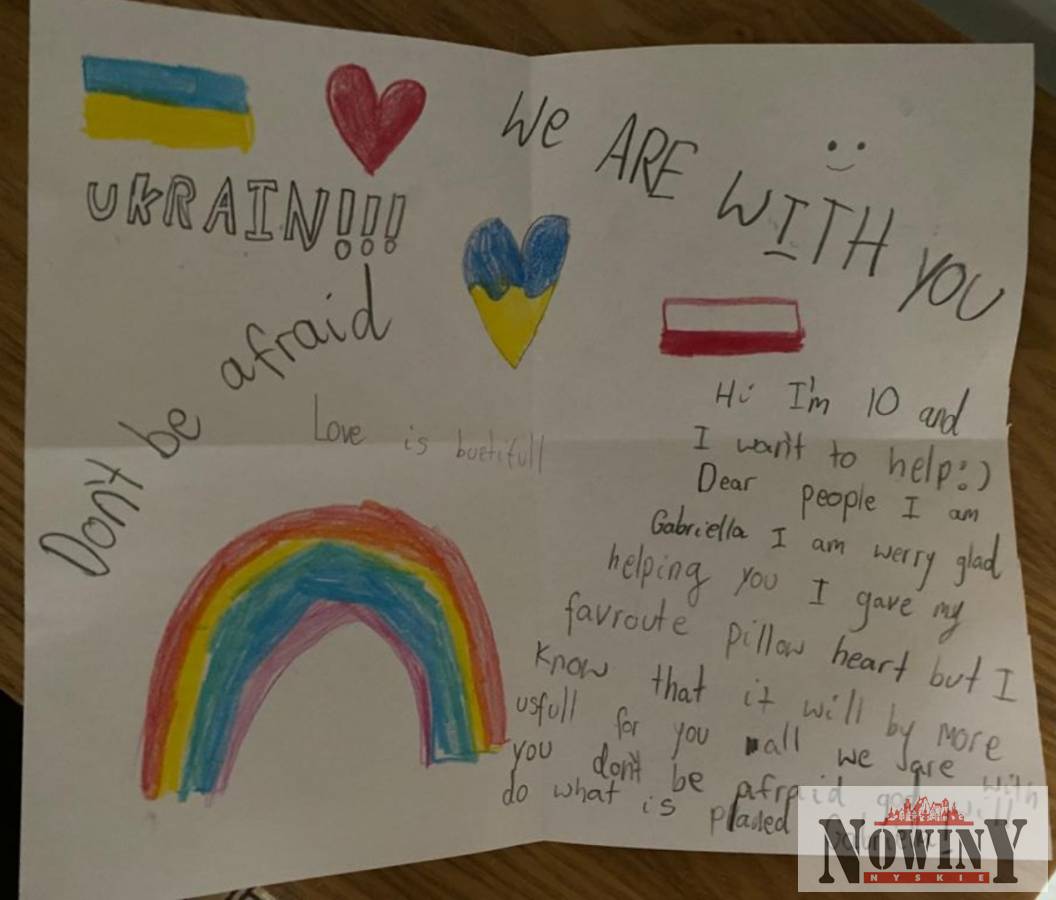 UKRAIN!!!
WE ARE WITH YOU
Don't be afraid
Love is buetifull
Hi I'm 10 and
I want to help:)
Dear people I am
Gabriella I am werry glad
helping you I gave my
favroute pillow heart but I
know that it will by more
usfull for you all we are with
you don't be afraid god will
do what is planed
NOWINY
NYSKIE